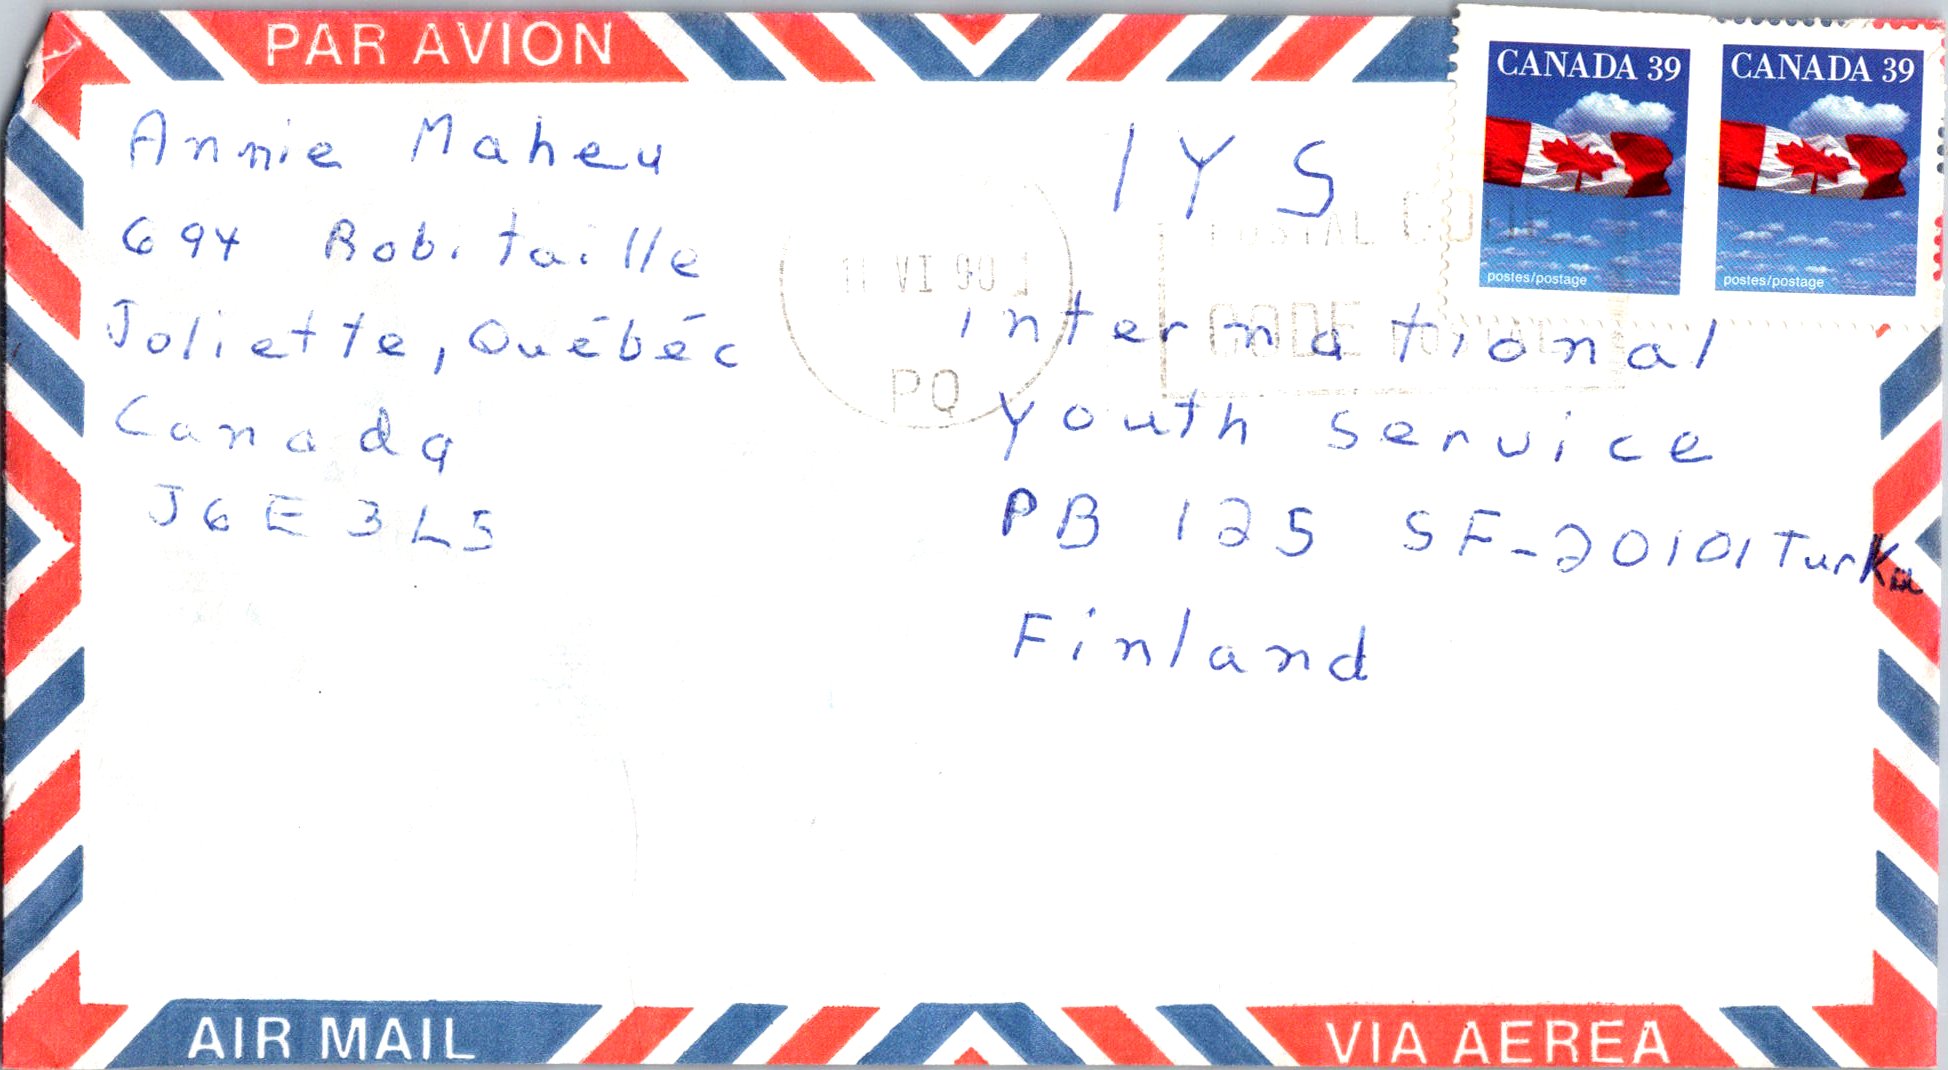 PAR AVION
CANADA 39
CANADA 39
postes/postage
postes/postage
Annie Maheu
694 Robitaille
Joliette, Québéc
Canada
J6E 3L5
11 VI 90
PQ
POSTAL CODE
CODE POSTAL
IYS
International
Youth Service
PB 125 SF-20101 Turku
Finland
AIR MAIL
VIA AEREA